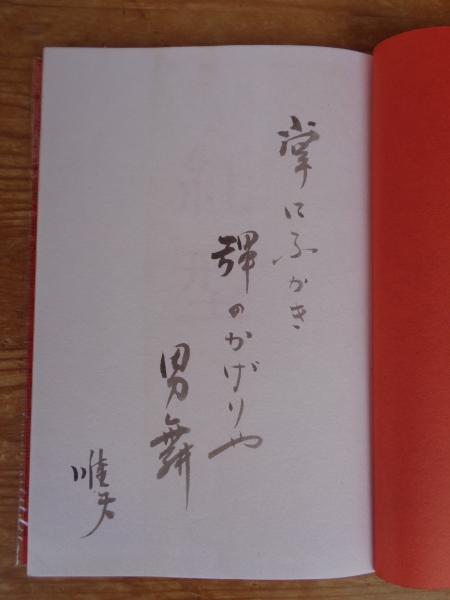 掌にふかき
弾のかげりや
男舞
唯